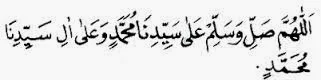 اَللّٰهُمَّ صَلِّ وَسَلِّمْ عَلٰى سَيِّدِنَا مُحَمَّدٍ وَعَلٰى اٰلِ سَيِّدِنَا
مُحَمَّدٍ.